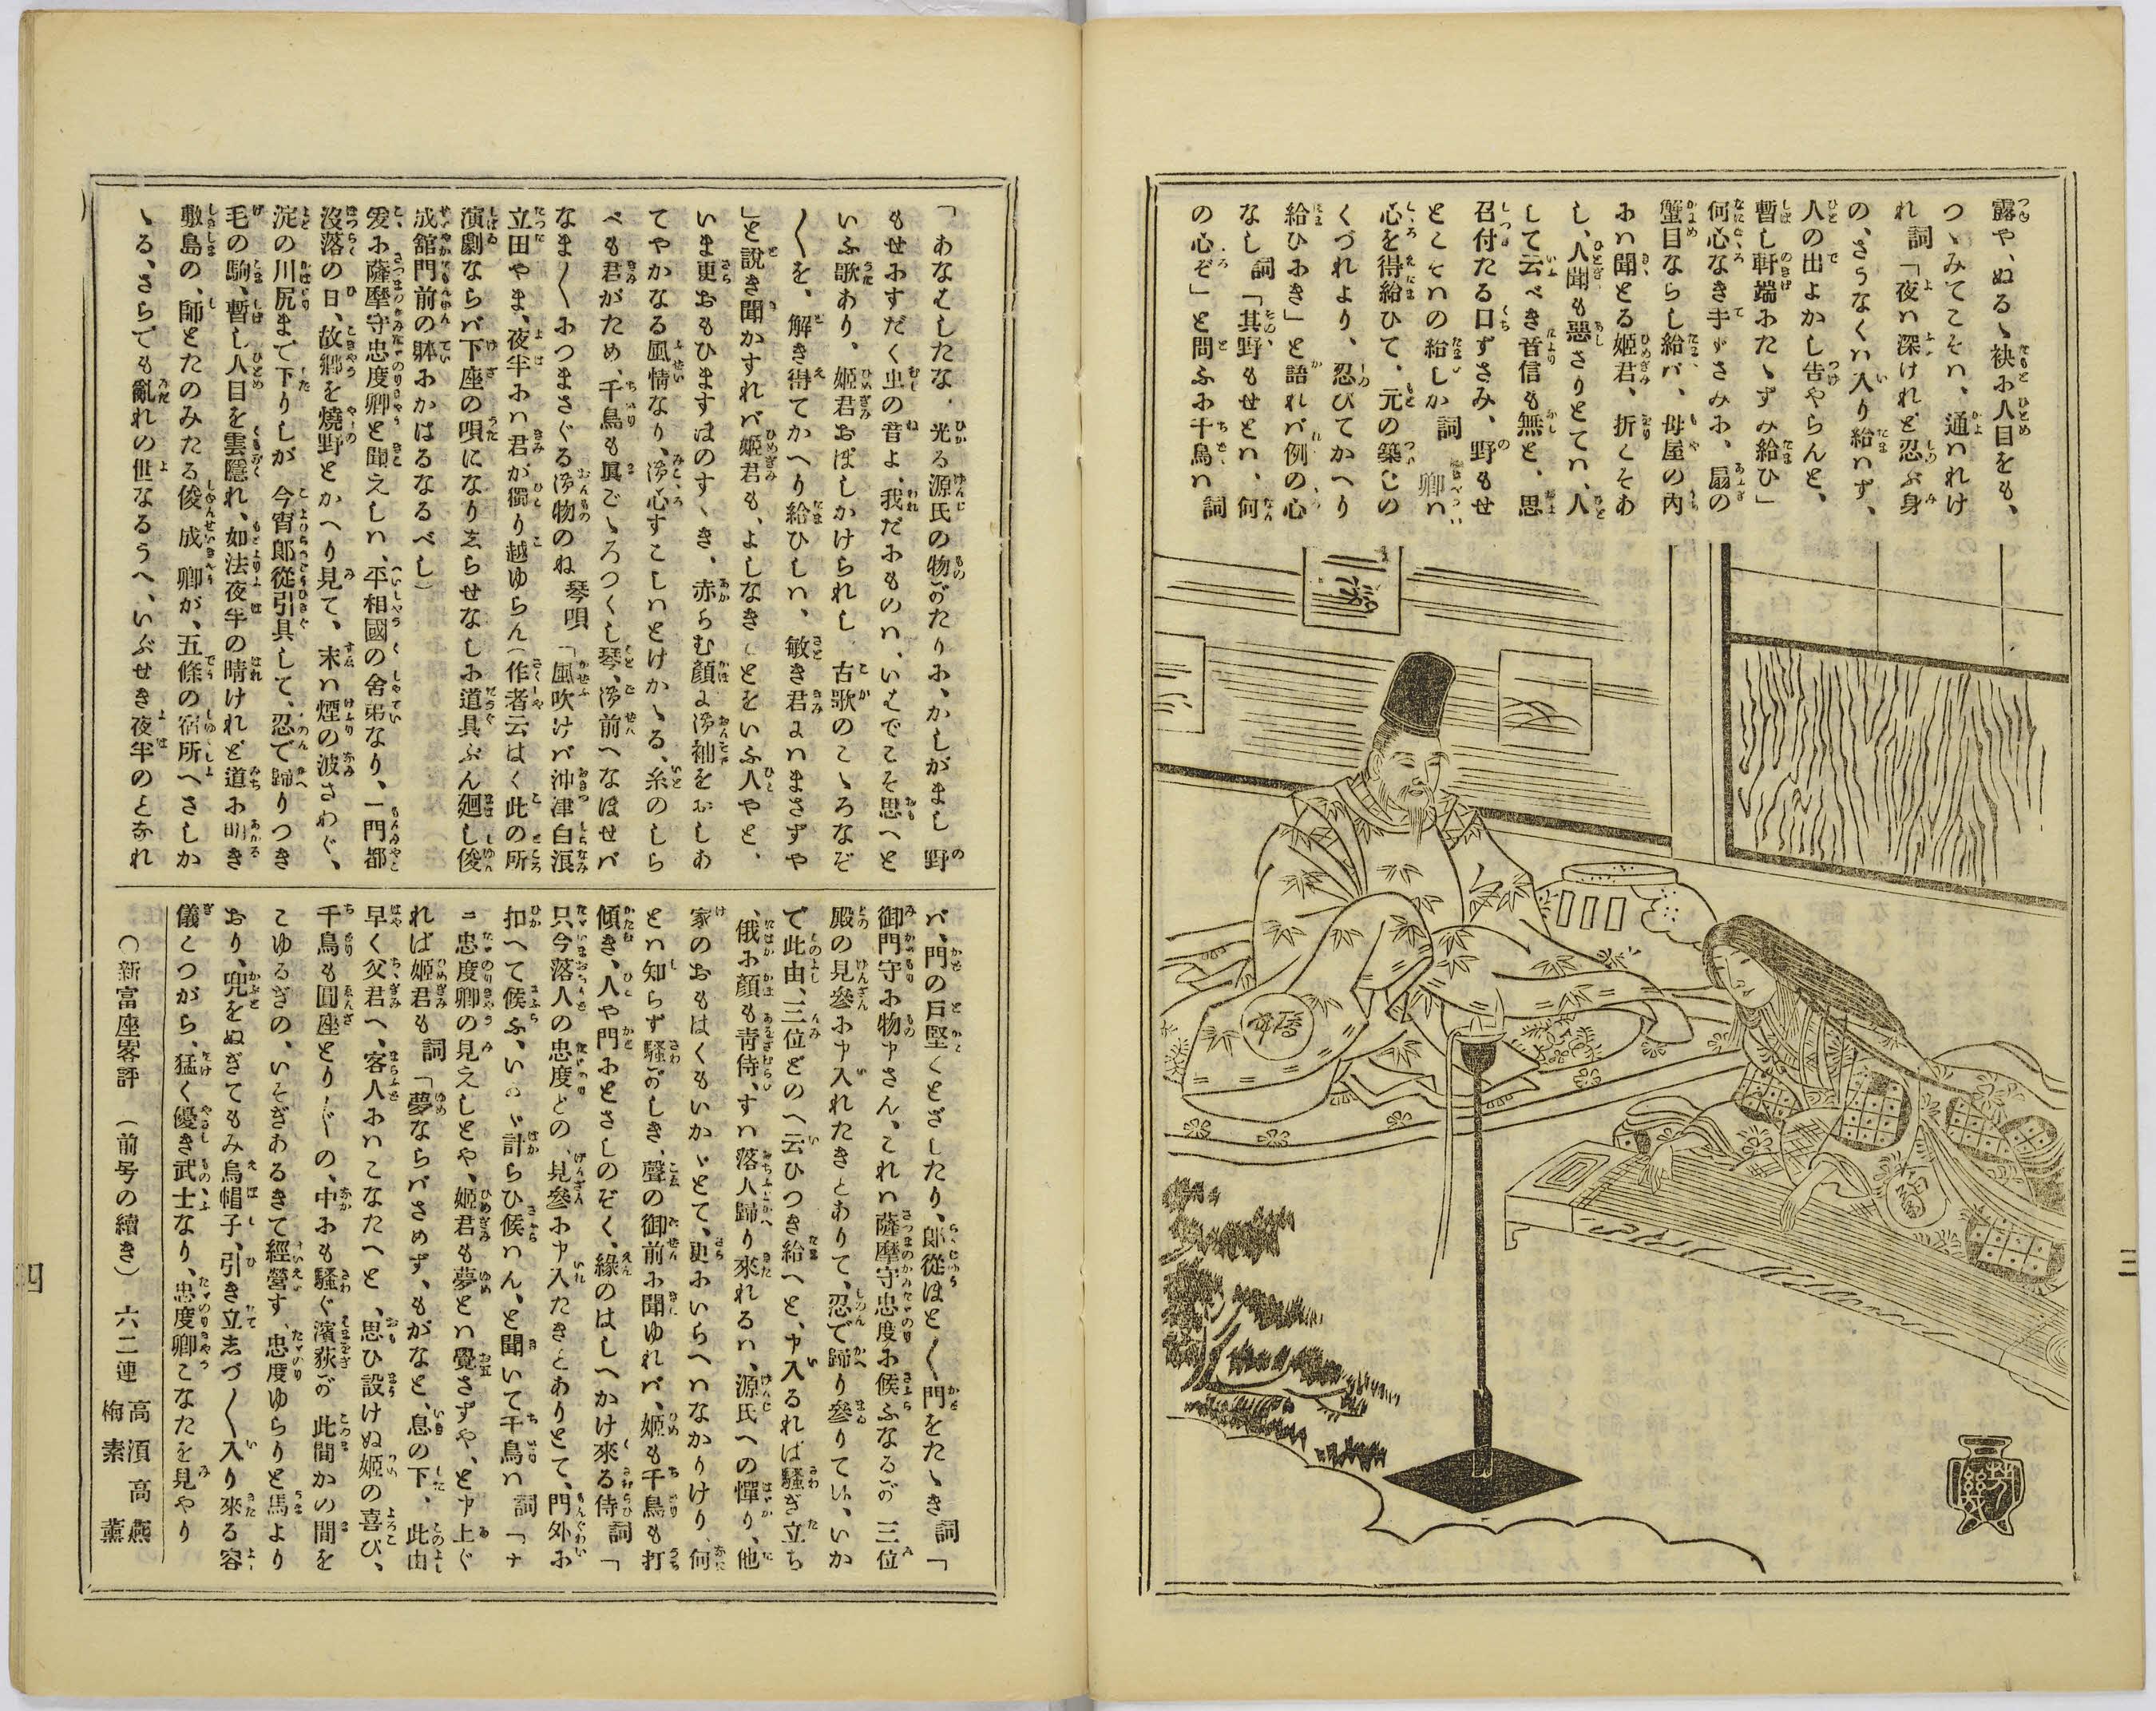 露や、ぬるゝ袂お人目をも、
つゝみてこそハ、通ハれけ
れ　詞「夜ハ深けれど忍ぶ身
の、さうなくハ入り給ハず、
人の出よかし告やらんと、
暫し軒端おたゝずみ給ひ」
何心なき手ずさみお、扇の
蟹目ならし給バ、母屋の內
おハ聞とる姬君、折くそあ
し、人聞も惡さりとてハ、人
して云べき音信も無と、思
召付たる口ずさみ、野もせ
とこそハの給しか　詞　卿ハ
心を得給ひて、元の築ぢの
くづれより、忍びてかへり
給ひおき」と語れバ例の心
なし　詞「其野もせとハ、何
の心ぞ」と問ふお千鳥ハ　詞
三
「あなむしたな、光る源氏の物がたりお、かしがまし　野
もせおすだく虫の音よ、我だおものハ、いむでこそ思へと
いふ歌あり、姬君おぼしかけられし　古歌のこゝろなぞ
〱を、解き得てかへり給ひしハ、敏き君よハまさずや
」と說き聞かすれバ姬君も、よしなきことをいふ人やと、
いま更おもひますほのすゝき、赤らむ顏よ御袖をおしあ
てやかなる風情なり、御心すこしハとけかゝる、糸のしら
べも君がため、千鳥も眞ごゝろつくし琴、御前へなほせバ
なま〱おつまさぐる御物のね　琴唄　「風吹けバ沖津白浪
立田やま、夜半おハ君が獨り越ゆらん（作者云はく此の所
演劇ならバ下座の唄になり志らせなしお道具ぶん廻し俊
成舘門前の躰おかはるなるべし）
爰お薩摩守忠度卿と聞えしハ、平相國の舍弟なり、一門都
沒落の日、故鄕を燒野とかへり見て、末ハ煙の波さわぐ、
淀の川尻まで下りしが　今宵郞從引具して、忍で歸りつき
毛の駒、暫し人目を雲隱れ、如法夜半の晴けれど道お明き
敷島の、師とたのみたる俊成卿が、五條の宿所へさしか
ゝる、さらでも亂れの世なるうへ、いぶせき夜半のとなれ
バ、門の戸堅くとざしたり、郞從ほと〱門をたゝき　詞「
御門守お物申さん、これハ薩摩守忠度お候ふなるが　三位
殿の見參お申入れたきとありて、忍で歸り參りてハ、いか
で此由、三位どのへ云ひつき給へと、申入るれば騷ぎ立ち
、俄お顏も靑侍、すハ落人歸り來れるハ、源氏への憚り、他
家のおもはくもいかゞとて、更おいらへハなかりけり、何
とハ知らず騷がしき、聲の御前お聞ゆれバ、姬も千鳥も打
傾き、人や門おとさしのぞく、緣のはしへかけ來る侍　詞「
只今落人の忠度どの、見參お申入たきとありとて、門外お
扣へて候ふ、いかゞ計らひ候ハん、と聞いて千鳥ハ　詞「ナ
ニ忠度卿の見えしとや、姬君も夢とハ覺さずや、と申上ぐ
れば姬君も　詞「夢ならバさめず、もがなと、息の下、此由
早く父君へ、客人おハこなたへと、思ひ設けぬ姬の喜び、
千鳥も圓座とり〲の、中おも騷ぐ濱荻が　此間かの間を
こゆるぎの、いそぎあるきて經營す、忠度ゆらりと馬より
おり、兜をぬぎてもみ烏帽子、引き立志づ〱入り來る容
儀こつがら、猛く優き武士なり、忠度卿こなたを見やり
○新富座畧評　（前号の續き）　六二連　高須　高燕
梅素　薫
四